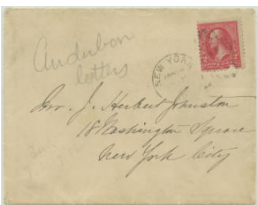 Audubon
letters
NEW YORK
Mr. J. Herbert Johnston
18 Washington Square
New York City